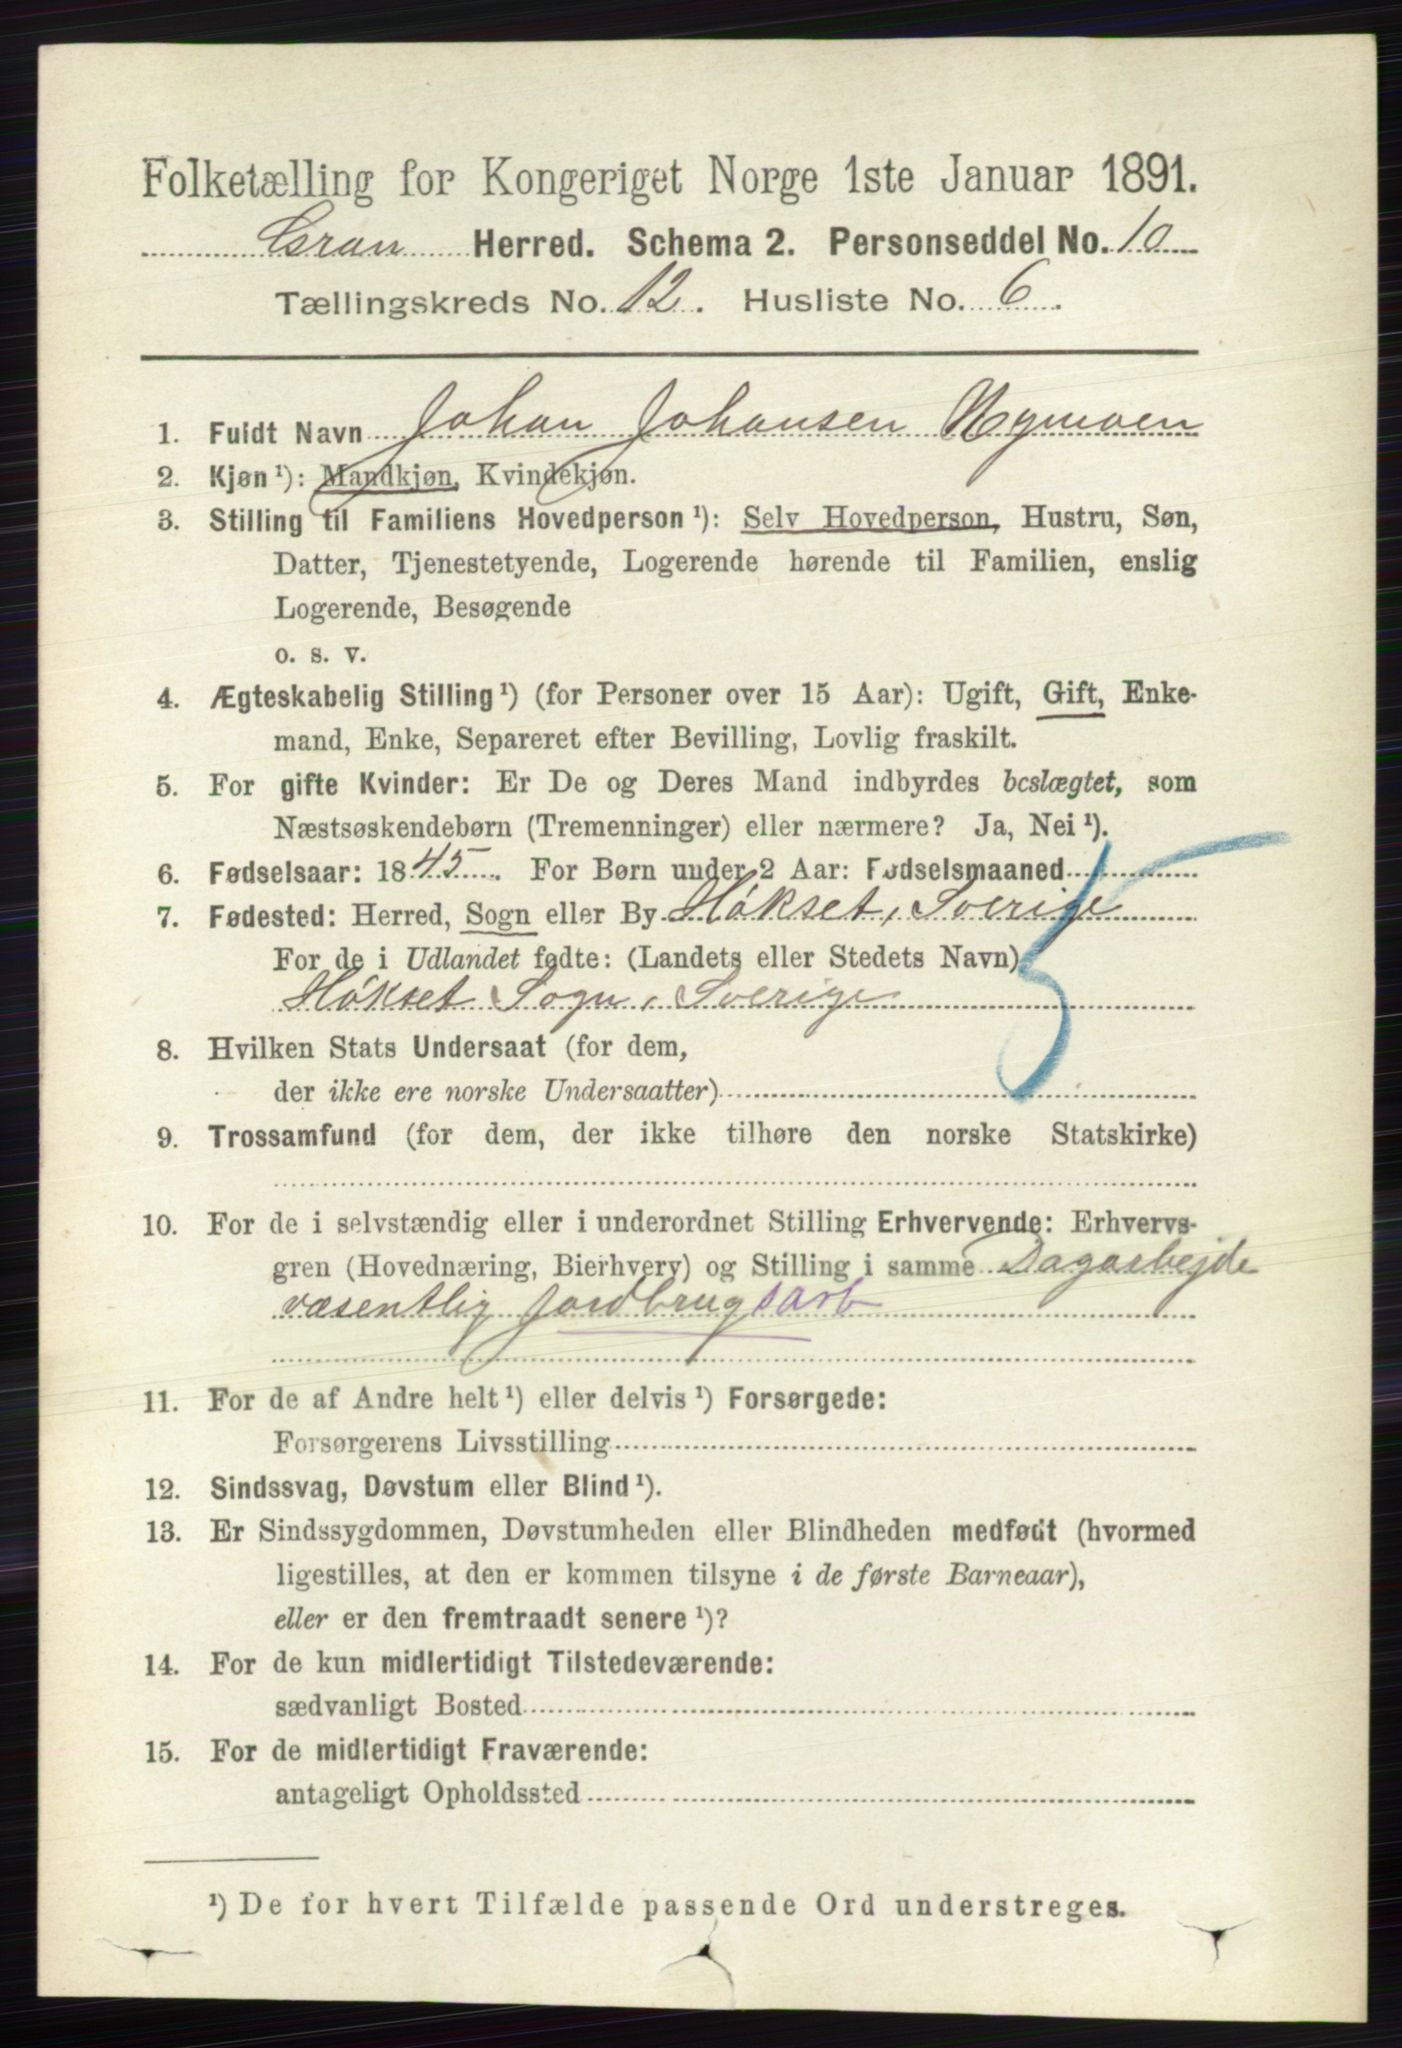 Folketælling for Kongeriget Norge 1ste Januar 1891.
Gran Herred. Schema 2. Personseddel No. 10
Tællingskreds No. 12. Husliste No. 6.
1. Fuldt Navn Johan Johansen Nymoen
2. Kjøn ¹): Mandkjøn, Kvindekjøn.
3. Stilling til Familiens Hovedperson ¹): Selv Hovedperson, Hustru, Søn,
Datter, Tjenestetyende, Logerende hørende til Familien, enslig
Logerende, Besøgende
o. s. v.
4. Ægteskabelig Stilling ¹) (for Personer over 15 Aar): Ugift, Gift, Enke-
mand, Enke, Separeret efter Bevilling, Lovlig fraskilt.
5. For gifte Kvinder: Er De og Deres Mand indbyrdes beslægtet, som
Næstsøskendebørn (Tremenninger) eller nærmere? Ja, Nei ¹).
6. Fødselsaar: 1845. For Børn under 2 Aar: Fødselsmaaned
7. Fødested: Herred, Sogn eller By Høkset, Sverige
For de i Udlandet fødte: (Landets eller Stedets Navn)
Høkset Sogn, Sverige
5
8. Hvilken Stats Undersaat (for dem,
der ikke ere norske Undersaatter)
9. Trossamfund (for dem, der ikke tilhøre den norske Statskirke)
10. For de i selvstændig eller i underordnet Stilling Erhvervende: Erhvervs-
gren (Hovednæring, Bierhverv) og Stilling i samme Dagarbejde
væsentlig Jordbrugsarb
11. For de af Andre helt ¹) eller delvis ¹) Forsørgede:
Forsørgerens Livsstilling
12. Sindssvag, Døvstum eller Blind ¹).
13. Er Sindssygdommen, Døvstumheden eller Blindheden medfødt (hvormed
ligestilles, at den er kommen tilsyne i de første Barneaar),
eller er den fremtraadt senere ¹)?
14. For de kun midlertidigt Tilstedeværende:
sædvanligt Bosted
15. For de midlertidigt Fraværende:
antageligt Opholdssted
¹) De for hvert Tilfælde passende Ord understreges.